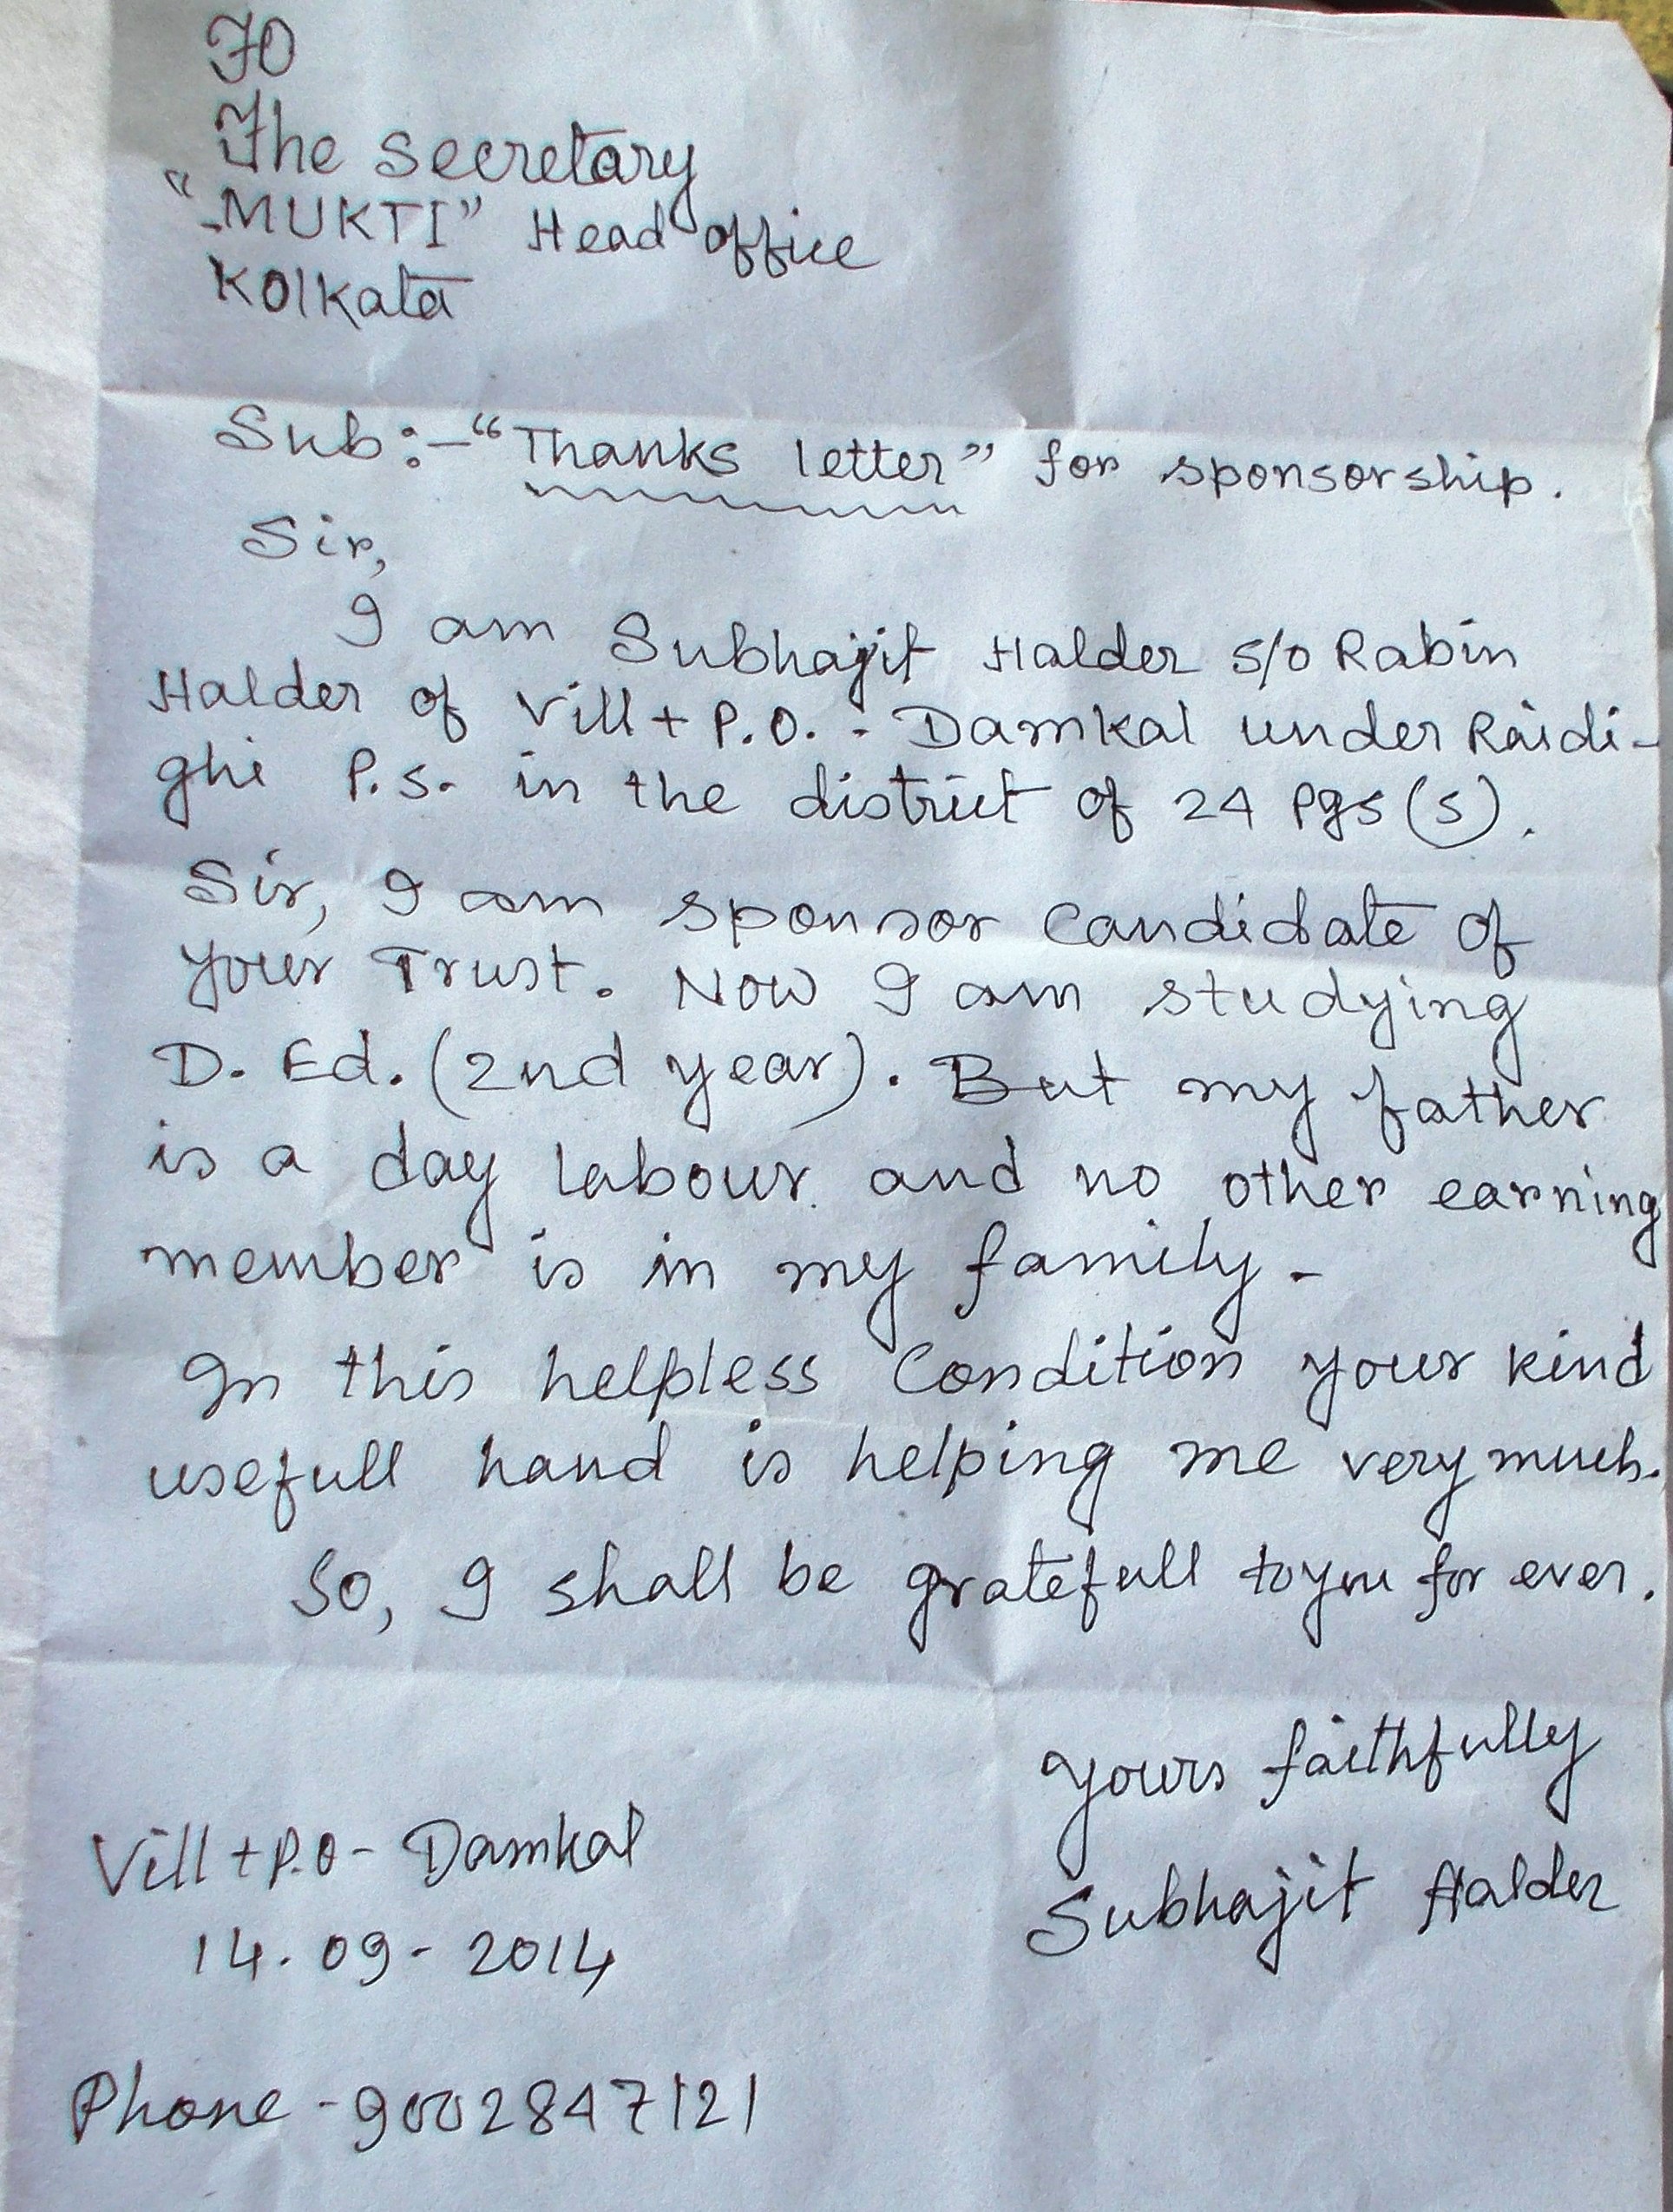 TO
The Secretary
"MUKTI" Head office
Kolkata
Sub:- "Thanks letter" for sponsorship.
Sir,
I am Subhajit Halder s/o Rabin
Halder of Vill + P.O. - Damkal under Raidi-
ghi P.S. in the district of 24 pgs (s).
Sir, I am sponsor candidate of
your Trust. Now I am studying
D. Ed. (2nd year). But my father
is a day labour and no other earning
member is in my family.
In this helpless condition your kind
usefull hand is helping me very much.
So, I shall be gratefull to you for ever.
Yours faithfully
Subhajit Halder
Vill + P.O - Damkal
14.09-2014
Phone - 9002847121